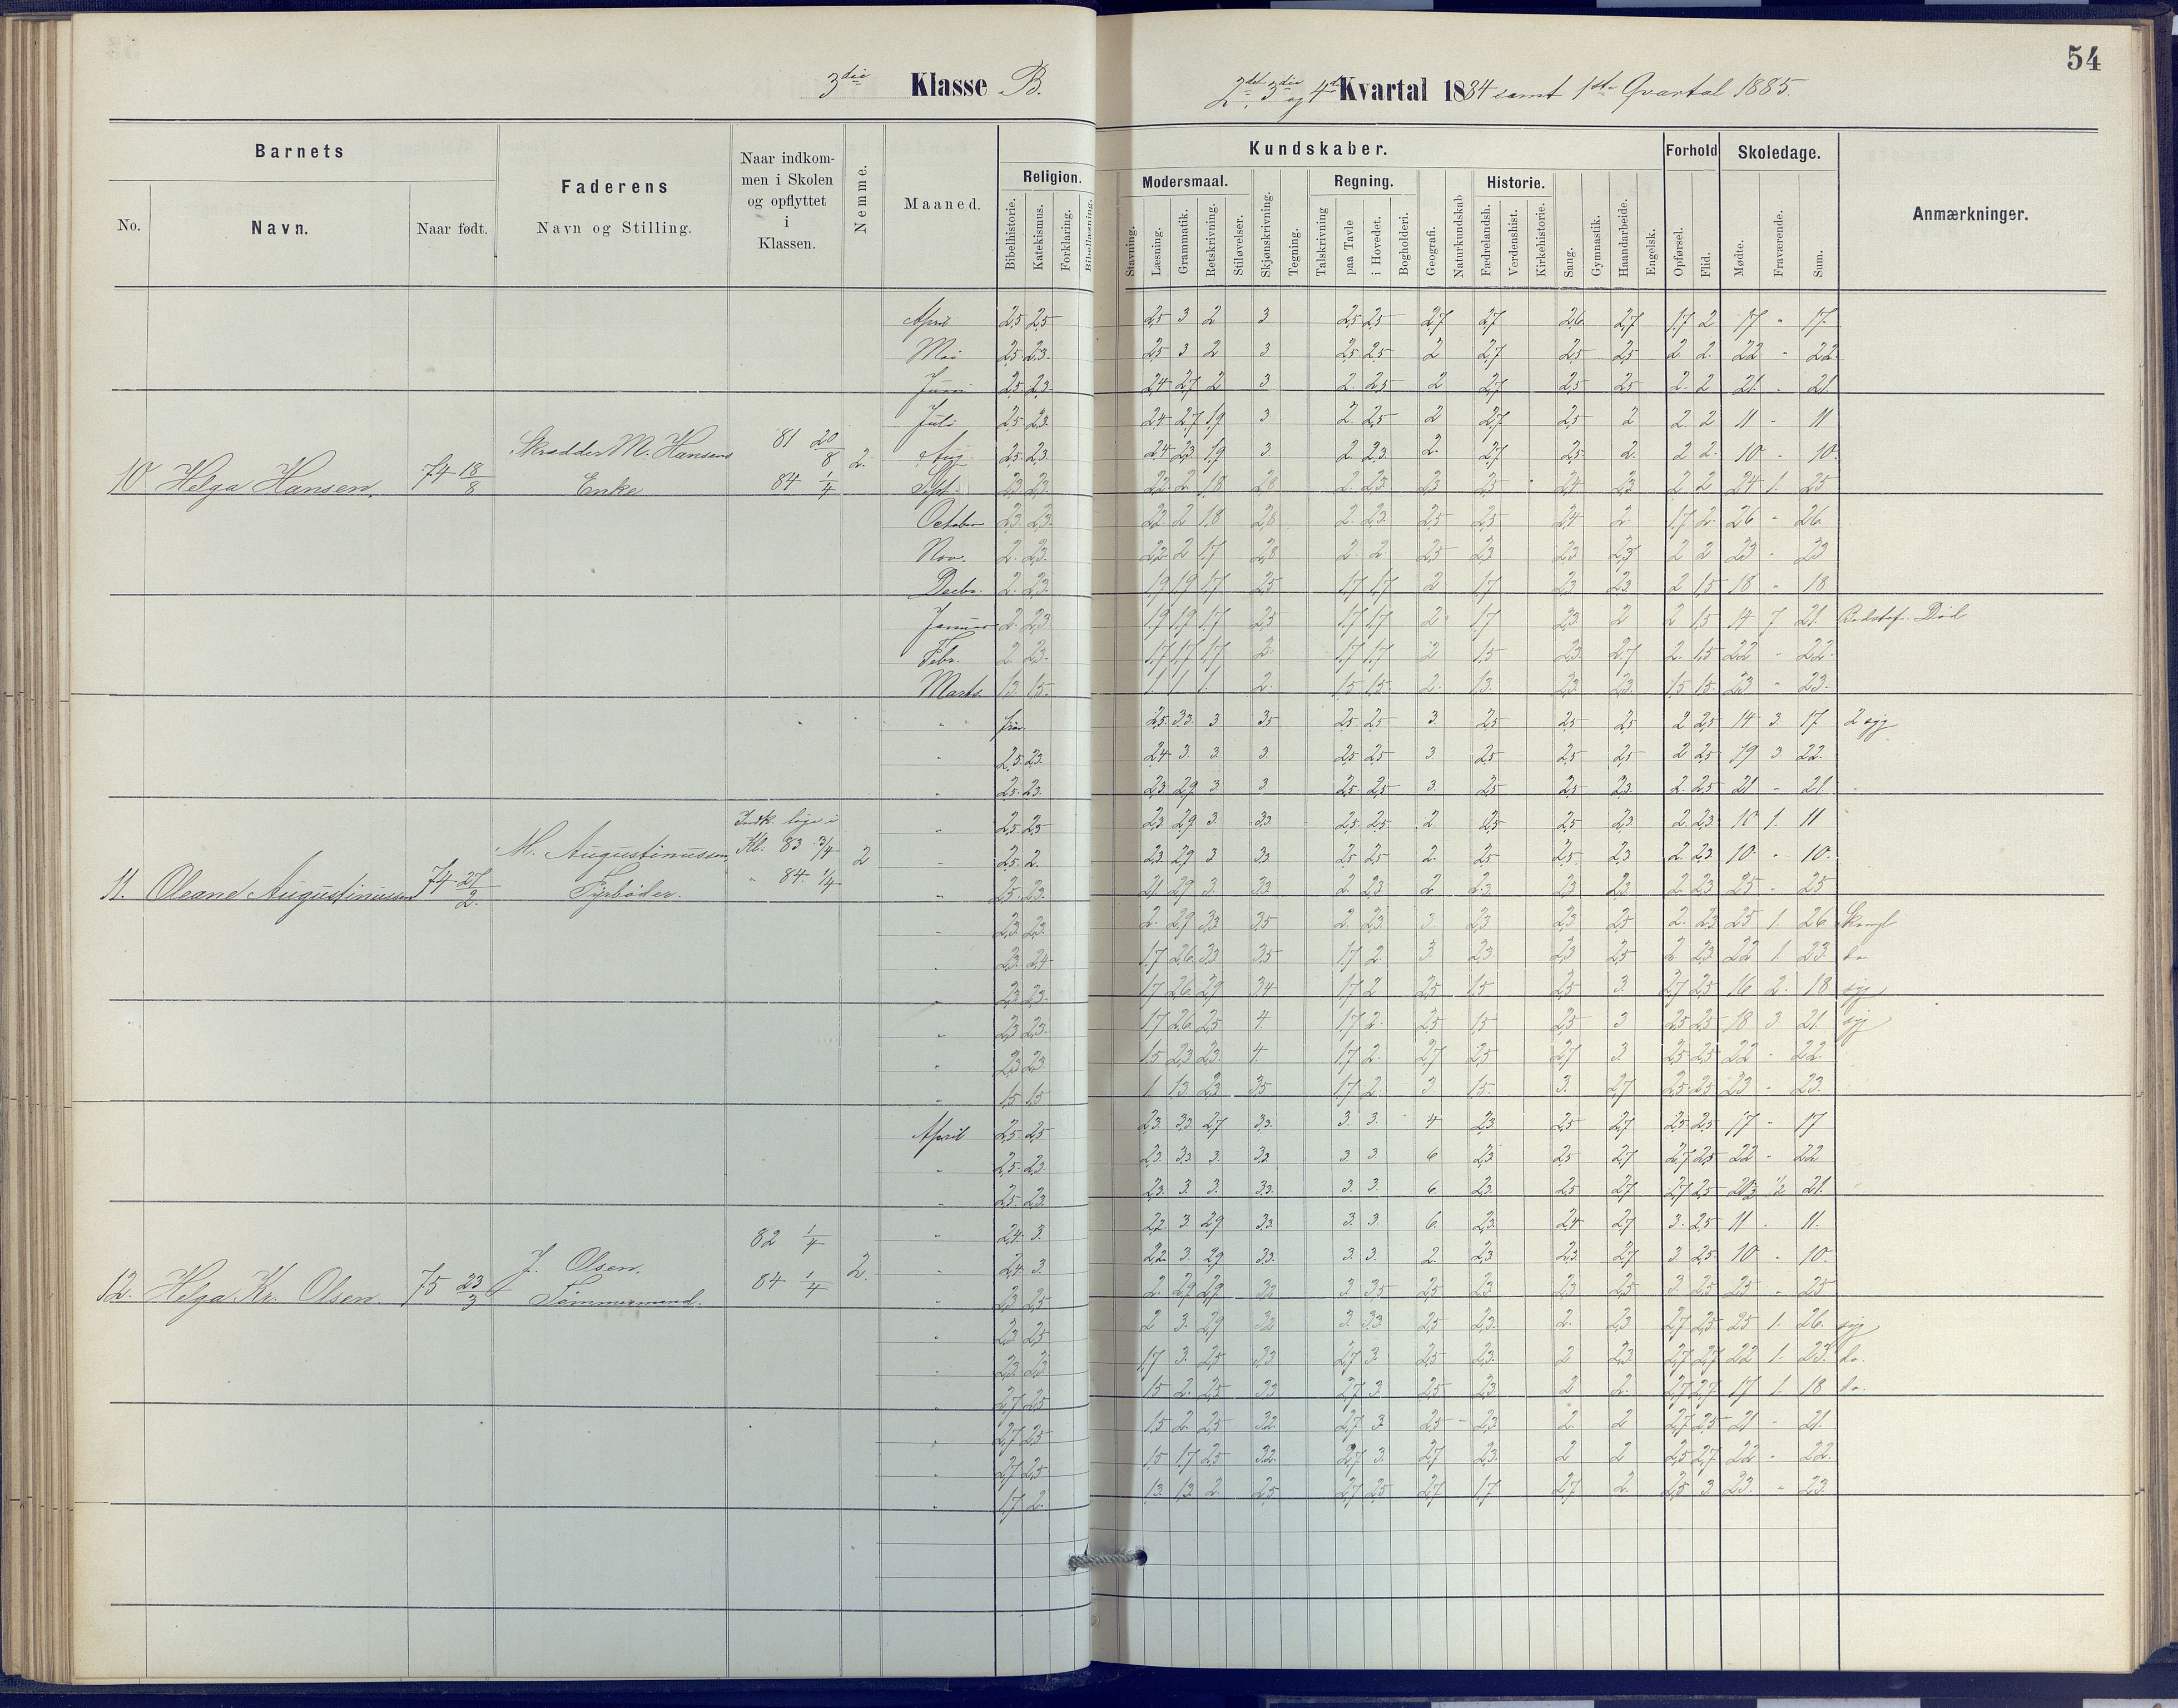 54
3die Klasse B.
2det, 3die og 4de Kvartal 1884 samt 1ste Qvartal 1885.
Barnets
No.
Navn.
Naar født.
Faderens
Navn og Stilling.
Naar indkom-
men i Skolen
og opflyttet
i
Klassen.
Nemme.
Maaned.
Religion.
Bibelhistorie.
Katekismus.
Forklaring.
Bibellæsning.
Kundskaber.
Modersmaal.
Stavning.
Læsning.
Grammatik.
Retskrivning.
Stiløvelser.
Skjønskrivning.
Tegning.
Regning.
Talskrivning
paa Tavle
i Hovedet.
Bogholderi.
Geografi.
Naturkundskab
Historie.
Fædrelandsh.
Verdenshist.
Kirkehistorie.
Sang.
Gymnastik.
Haandarbeide.
Engelsk.
Forhold
Opførsel.
Flid.
Skoledage.
Mødte.
Fraværende.
Sum.
Anmærkninger.
10 Helga Hansen. 74 18/8 Skrædder M. Hansens Enke 81 20/8 84 1/4 2.
April 2,5 2,5 2,5 3 2 3 2,5 2,5 2,7 2,7 2,6 2,7 1,7 2 17 " 17.
Mai 2,5 2,3 2,5 3 2 3 2,5 2,5 2 2,7 2,5 2,5 2 2. 22 " 22.
Juni 2,5 2,3 2,4 2,7 2 3 2. 2,5 2 2,7 2,5 2,5 2. 2 21. " 21.
Juli 2,5 2,3 2,4 2,7 1,9 3 2. 2,5 2 2,7 2,5 2 2. 2 11 " 11
Aug. 2,5 2,3 2,4 2,3 1,9 3. 2 2,3 2. 2,7 2,5 2. 2 2. 10 " 10.
Sept. 2,3 2,3 2,2 2 1,8 2,8 2. 2,3 2,3 2,5 2,4 2,3 2 2 24 1. 25
October 2,3 2,3 2,2 2 1,8 2,8 2. 2,3 2,5 2,5 2,4 2. 1,7 2. 26 " 26
Nov. 2. 2,3 2,2 2 1,7 2,8 2. 2. 2,5 2,3 2,3 2,3 2 2 23 " 23
Decbr. 2. 2,3 1,9 1,9 1,7 2,5 1,7 1,7 2 1,7 2,3 2,3 2 1,5 18 " 18
Januar 2. 2,3 1,9 1,9 1,7 2,5 1,7 1,7 2 1,7 2,3 2 2 1,5 14 7 21. Bedstef. Død
Febr. 2. 2,3 1,7 1,7 1,7 2. 1,7 1,7 2 1,5 2,3 2,7 2. 1,5 22 " 22.
Marts. 1,3 1,5 1. 1. 1. 2. 1,5 1,5 2. 1,3 2,3 2,3 1,5 1,5 23 " 23.
11. Oleane Augustinussen 74 27/2. M. Augustinussen, Fyrbøder. Indk. lige i Kl. 83 3/4 " 84. 1/4 2
" 2,5. 3,3. 3 3,5 2,5 2,5 3. 2,5 2,5 2,5 2 2,5 14 3 17 2 syg
" 2,5 2,3 2,4 3. 3. 3. 2,5 2,5 3. 2,5 2,5 2,5 2 2,5 19 3 22.
" 2,5 2,3 2,3 2,9 3 3 2,5 2,5 3. 2,5 2,5 2,3 2. 2,5 21 " 21.
" 2,5 2,5 2,3 2,9 3. 3,3 2,5 2,5 2. 2,5 2,5 2,3 2. 2,3 10 1. 11
" 2,5 2. 2,3 2,9 3 3,3 2,5 2,5 2. 2,5 2,5 2,3 2. 2,3 10. " 10.
" 2,5 2,3 2,1 2,9 3. 3,3 2. 2,3 2 2,3 2,3 2,3 2. 2,3 25 " 25
" 2,3 2,3 2. 2,9 3,3 3,5 2. 2,3 3. 2,3 2,3 2,5 2. 2,3 25 1. 26
" 2,3 2,4 1,7 2,6 3,3 3,5 1,7 2. 3. 2,3 2,3 2,5 2 2,3 22 1. 23 do
" 2,3 2,3 1,7 2,6 2,9 3,4 1,7 2 2,5 1,5 2,5 3. 2,7 2,5 16 2. 18 syg
" 2,3 2,3 1,7 2,6 2,5 4. 1,7 2. 2,5 1,5 2,5 3 2,5 2,5 18 3 21. syg
" 2,3 2,3 1,5 2,3 2,3 4. 1,7 2. 2,7 2,5 2,7 3. 2,5 2,5 22 " 22
" 1,5 1,5 1. 1,3 2,3 3,5 1,7 2. 3 1,5 3. 2,7 2,5 2,5 23 " 23.
12. Helga Kr. Olsen. 75 23/3 J. Olsen. Tømmermand. 82 1/4 84 1/4 2.
April 2,5 2,5 2,3 3,3 2,7 3,3. 3. 3. 4 2,3 2,5 2,7 2,5 2,5 17 " 17
" 2,5 2,3 2,3 3,3 3. 3,3 3. 3. 6 2,3 2,5 2,7 2,7 2,5 22 " 22
" 2,5 2,3 2,3 3. 3. 3,3. 3. 3. 6. 2,3 2,5 2,7 2,7 2,5 20 1/2 1/2 21.
" 2,4 3. 2,2 3 2,9 3,3 3. 3. 6. 2,3 2,4 2,7 3. 2,5 11 " 11.
" 2,4 3. 2,2 3. 2,9 3,3. 3. 3. 2. 2,3 2,3 2,7 3 2,5 10 " 10.
" 2,3 2,5 2. 2,9 2,9 3,2 3 3,5 2,5 2,3 2,3 2,5 3. 2,5 25 " 25
" 2,3 2,5 2 3. 2,9 3,2 3. 3,3 2,5 2,3 2. 2,3 2,7 2,5 25 1. 26. syg
" 2,3 2,3 1,7 3. 2,5 3,3 2,7 3. 2,5 2,3 2 2,3 2,7 2,7 22 1. 23. do.
" 2,7 2,5 1,5 2. 2,5 3,3 2,7 3. 2,5 2,3 2 2. 2,7 2,7 17 1. 18 do.
" 2,7 2,5 1,5 2. 2,5 3,2 2,7 3 2,5 2,3 2. 2 2,7 2,5 21 " 21.
" 2,7 2,5 1,5 1,7 2,5 3,2. 2,7 3. 2,7 2,3 2 2 2,5 2,7 22 " 22.
" 1,7 2. 1,3 1,3 2. 2,5 2,7 2,5 2,7 1,7 2,7 2. 2,5 3. 23. " 23